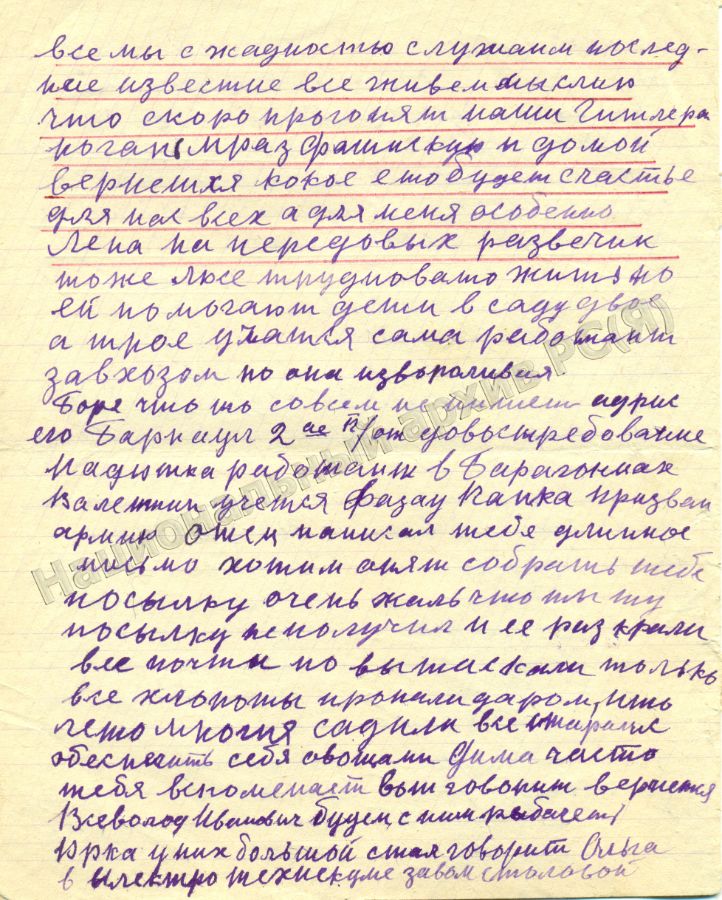 все мы с жадностью служаим послед-
ние известие все живем мыслию
что скоро прогонят наши Гитлера
поган мраз фашискую и домой
вернешхя кокое ето будет счастье
для нас всех а для меня особенно
Лена на передовых разведчик
тоже Люсе трудновато жить но
ей помогают дети в саду двое
а трое учатся сама работает
завхозом но она изворачивая
Боре что то совсем не пишет адрис
его Барнаул 2 ае п/от довостребование
Надюшка работаит в Барагонцах
Валентин учется Фазау Панка призван
армию Отец написал тебе длинное
письмо хотим опят собрать тебе
посылку очень жаль что ты ту
посылку не получил и ее раз крали
все почти по вытаскали только
все хлопоты пропали даром,
лето многия садили все старалис
обеспечить себя овощами Дима часто
тебя вспоменает вот говорит вернется
Всеволод Иванович будем с ним рыбачеть
Юрка у них большой стал говорит Ольга
в електро техникуме завом столовой
Национальный архив РС(Я)